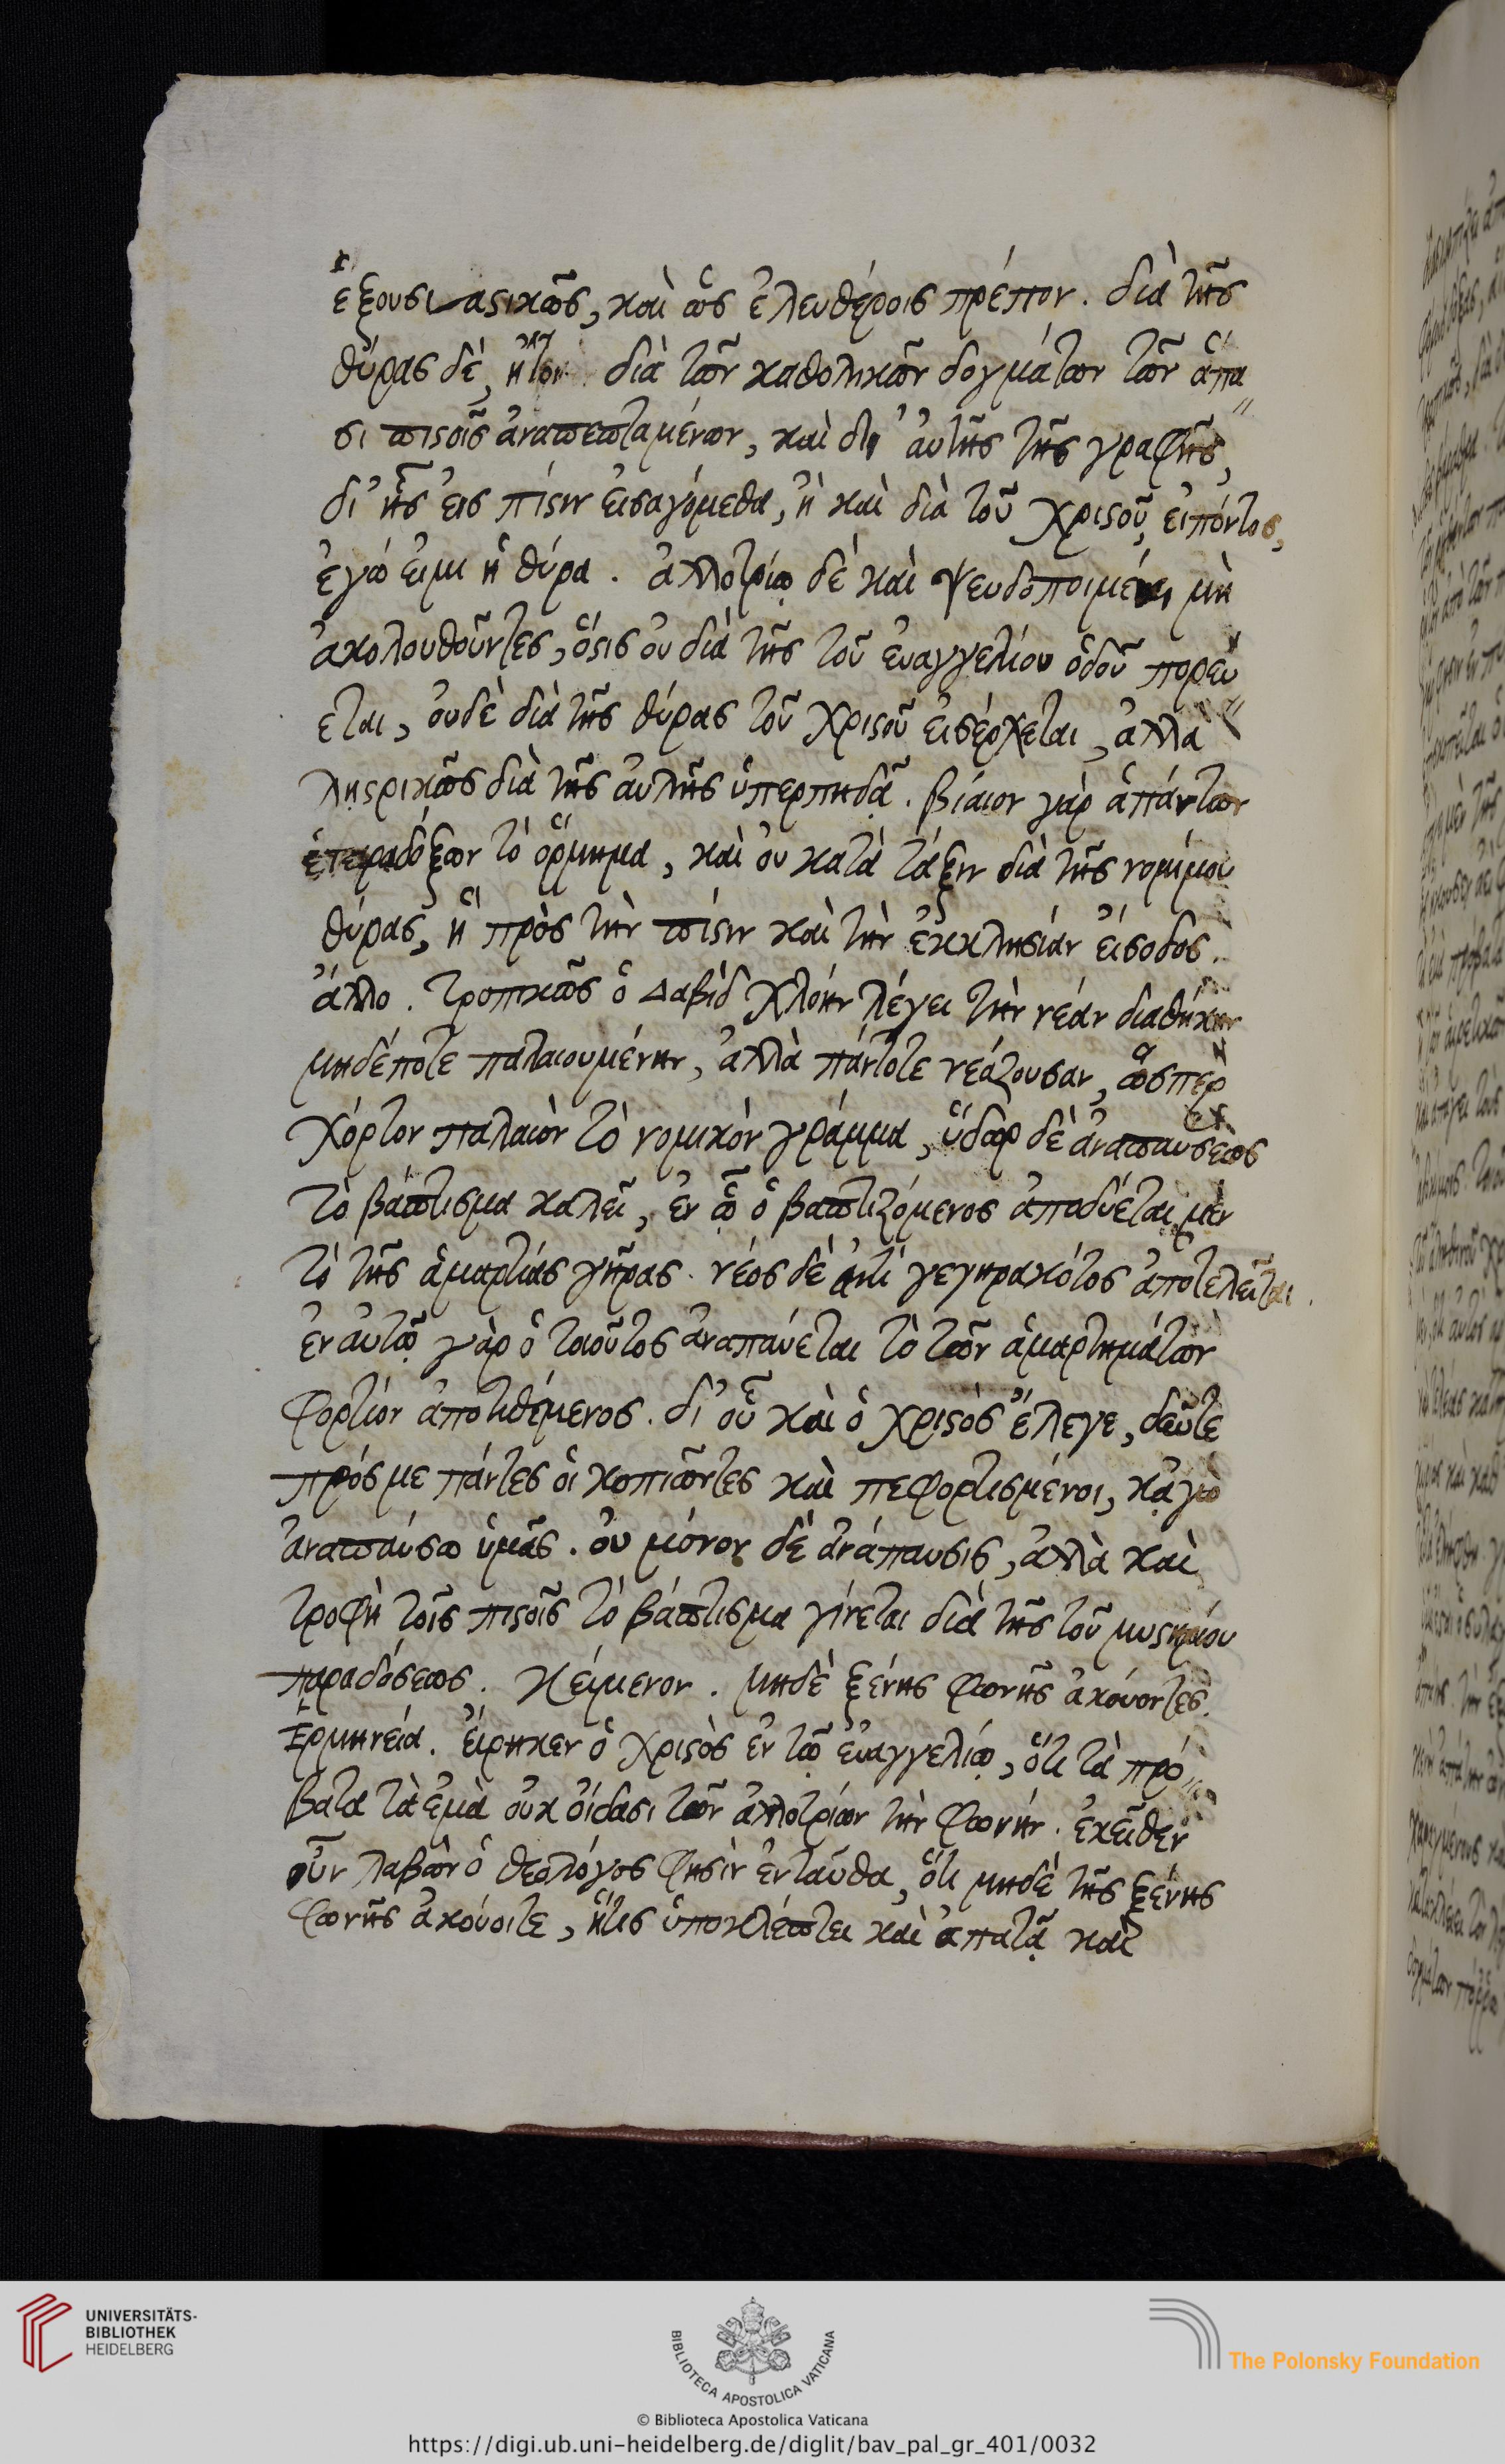 ἐξουσιαστικῶς, καὶ ὡς ἐλευθέροις πρέπον. διὰ τῆς
θύρας δὲ, ἤτοι διὰ τῶν καθολικῶν δογμάτων τῶν ἅπα
σι πιστοῖς ἀναπεπταμένων, καὶ δι' αὐτῆς τῆς γραφῆς,
δι' ἧς εἰς πίστιν εἰσαγόμεθα, ἢ καὶ διὰ τοῦ χριστοῦ, εἰπόντος,
ἐγώ εἰμι ἡ θύρα. ἀλλοτρίῳ δὲ καὶ ψευδοποιμένι μὴ
ἀκολουθοῦντες, ὅστις οὐ διὰ τῆς τοῦ εὐαγγελίου ὁδοῦ πορεύ
εται, οὐδὲ διὰ τῆς θύρας τοῦ χριστοῦ εἰσέρχεται, ἀλλὰ
λῃστρικῶς διὰ τῆς αὐλῆς ὑπερπηδᾷ. βίαιον γὰρ ἁπάντων
ἑτεροδόξων τὸ ὅρμημα, καὶ οὐ κατὰ τάξιν διὰ τῆς νομίμου
θύρας, ἡ πρὸς τὴν πίστιν καὶ τὴν ἐκκλησίαν εἴσοδος.
ἄλλο. τροπικῶς ὁ Δαβὶδ χλόην λέγει τὴν νέαν διαθήκην
μηδέποτε παλαιουμένην, ἀλλὰ πάντοτε νεάζουσαν, ὥσπερ
χόρτον παλαιὸν τὸ νομικὸν γράμμα, ὕδωρ δὲ ἀναπαύσεως
τὸ βάπτισμα καλεῖ, ἐν ᾧ ὁ βαπτιζόμενος ἀποδύεται μὲν
τὸ τῆς ἁμαρτίας γῆρας. νέος δὲ ἀντὶ γεγηρακότος ἀποτελεῖται.
ἐν αὐτῷ γὰρ ὁ τοιοῦτος ἀναπαύεται τὸ τῶν ἁμαρτημάτων
φορτίον ἀποτιθέμενος. δι' οὗ καὶ ὁ χριστὸς ἔλεγε, δεῦτε
πρός με πάντες οἱ κοπιῶντες καὶ πεφορτισμένοι, κᾀγὼ
ἀναπαύσω ὑμᾶς. οὐ μόνον δὲ ἀνάπαυσις, ἀλλὰ καὶ
τροφὴ τοῖς πιστοῖς τὸ βάπτισμα γίνεται διὰ τῆς τοῦ μυστηρίου
παραδόσεως. κείμενον. μηδὲ ξένης φωνῆς ἀκούοντες.
Ἑρμηνεία. εἴρηκεν ὁ χριστὸς ἐν τῷ εὐαγγελίῳ, ὅτι τὰ πρό
βατα τὰ ἐμὰ οὐκ οἴδασι τῶν ἀλλοτρίων τὴν φωνήν. ἐκεῖθεν
οὖν λαβὼν ὁ θεολόγος φησὶν ἐνταῦθα, ὅτι μηδὲ τῆς ξένης
φωνῆς ἀκούοιτε, ἥτις ὑποκλέπτει καὶ ἀπατᾷ καὶ
UNIVERSITÄTS-
BIBLIOTHEK
HEIDELBERG
BIBLIOTECA APOSTOLICA VATICANA
The Polonsky Foundation
© Biblioteca Apostolica Vaticana
https://digi.ub.uni-heidelberg.de/diglit/bav_pal_gr_401/0032